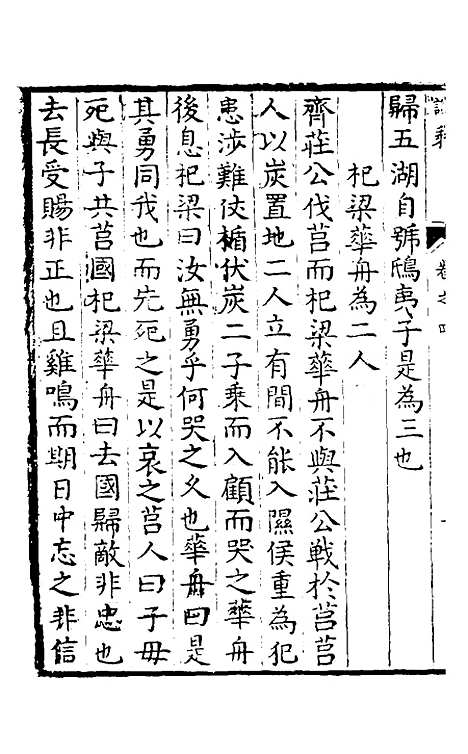 歸五湖自號鴟夷子是為三也
杞梁華舟為二人
齊莊公伐莒而杞梁華舟不與莊公戰於莒莒
人以炭置地二人立有間不能入隰侯重為犯
患涉難仗楯伏炭二子乘而入顧而哭之華舟
後息杞梁曰汝無勇乎何哭之久也華舟曰是
其勇同我也而先死之是以哀之莒人曰子毋
死與子共莒國杞梁華舟曰去國歸敵非忠也
去長受賜非正也且雞鳴而期日中忘之非信